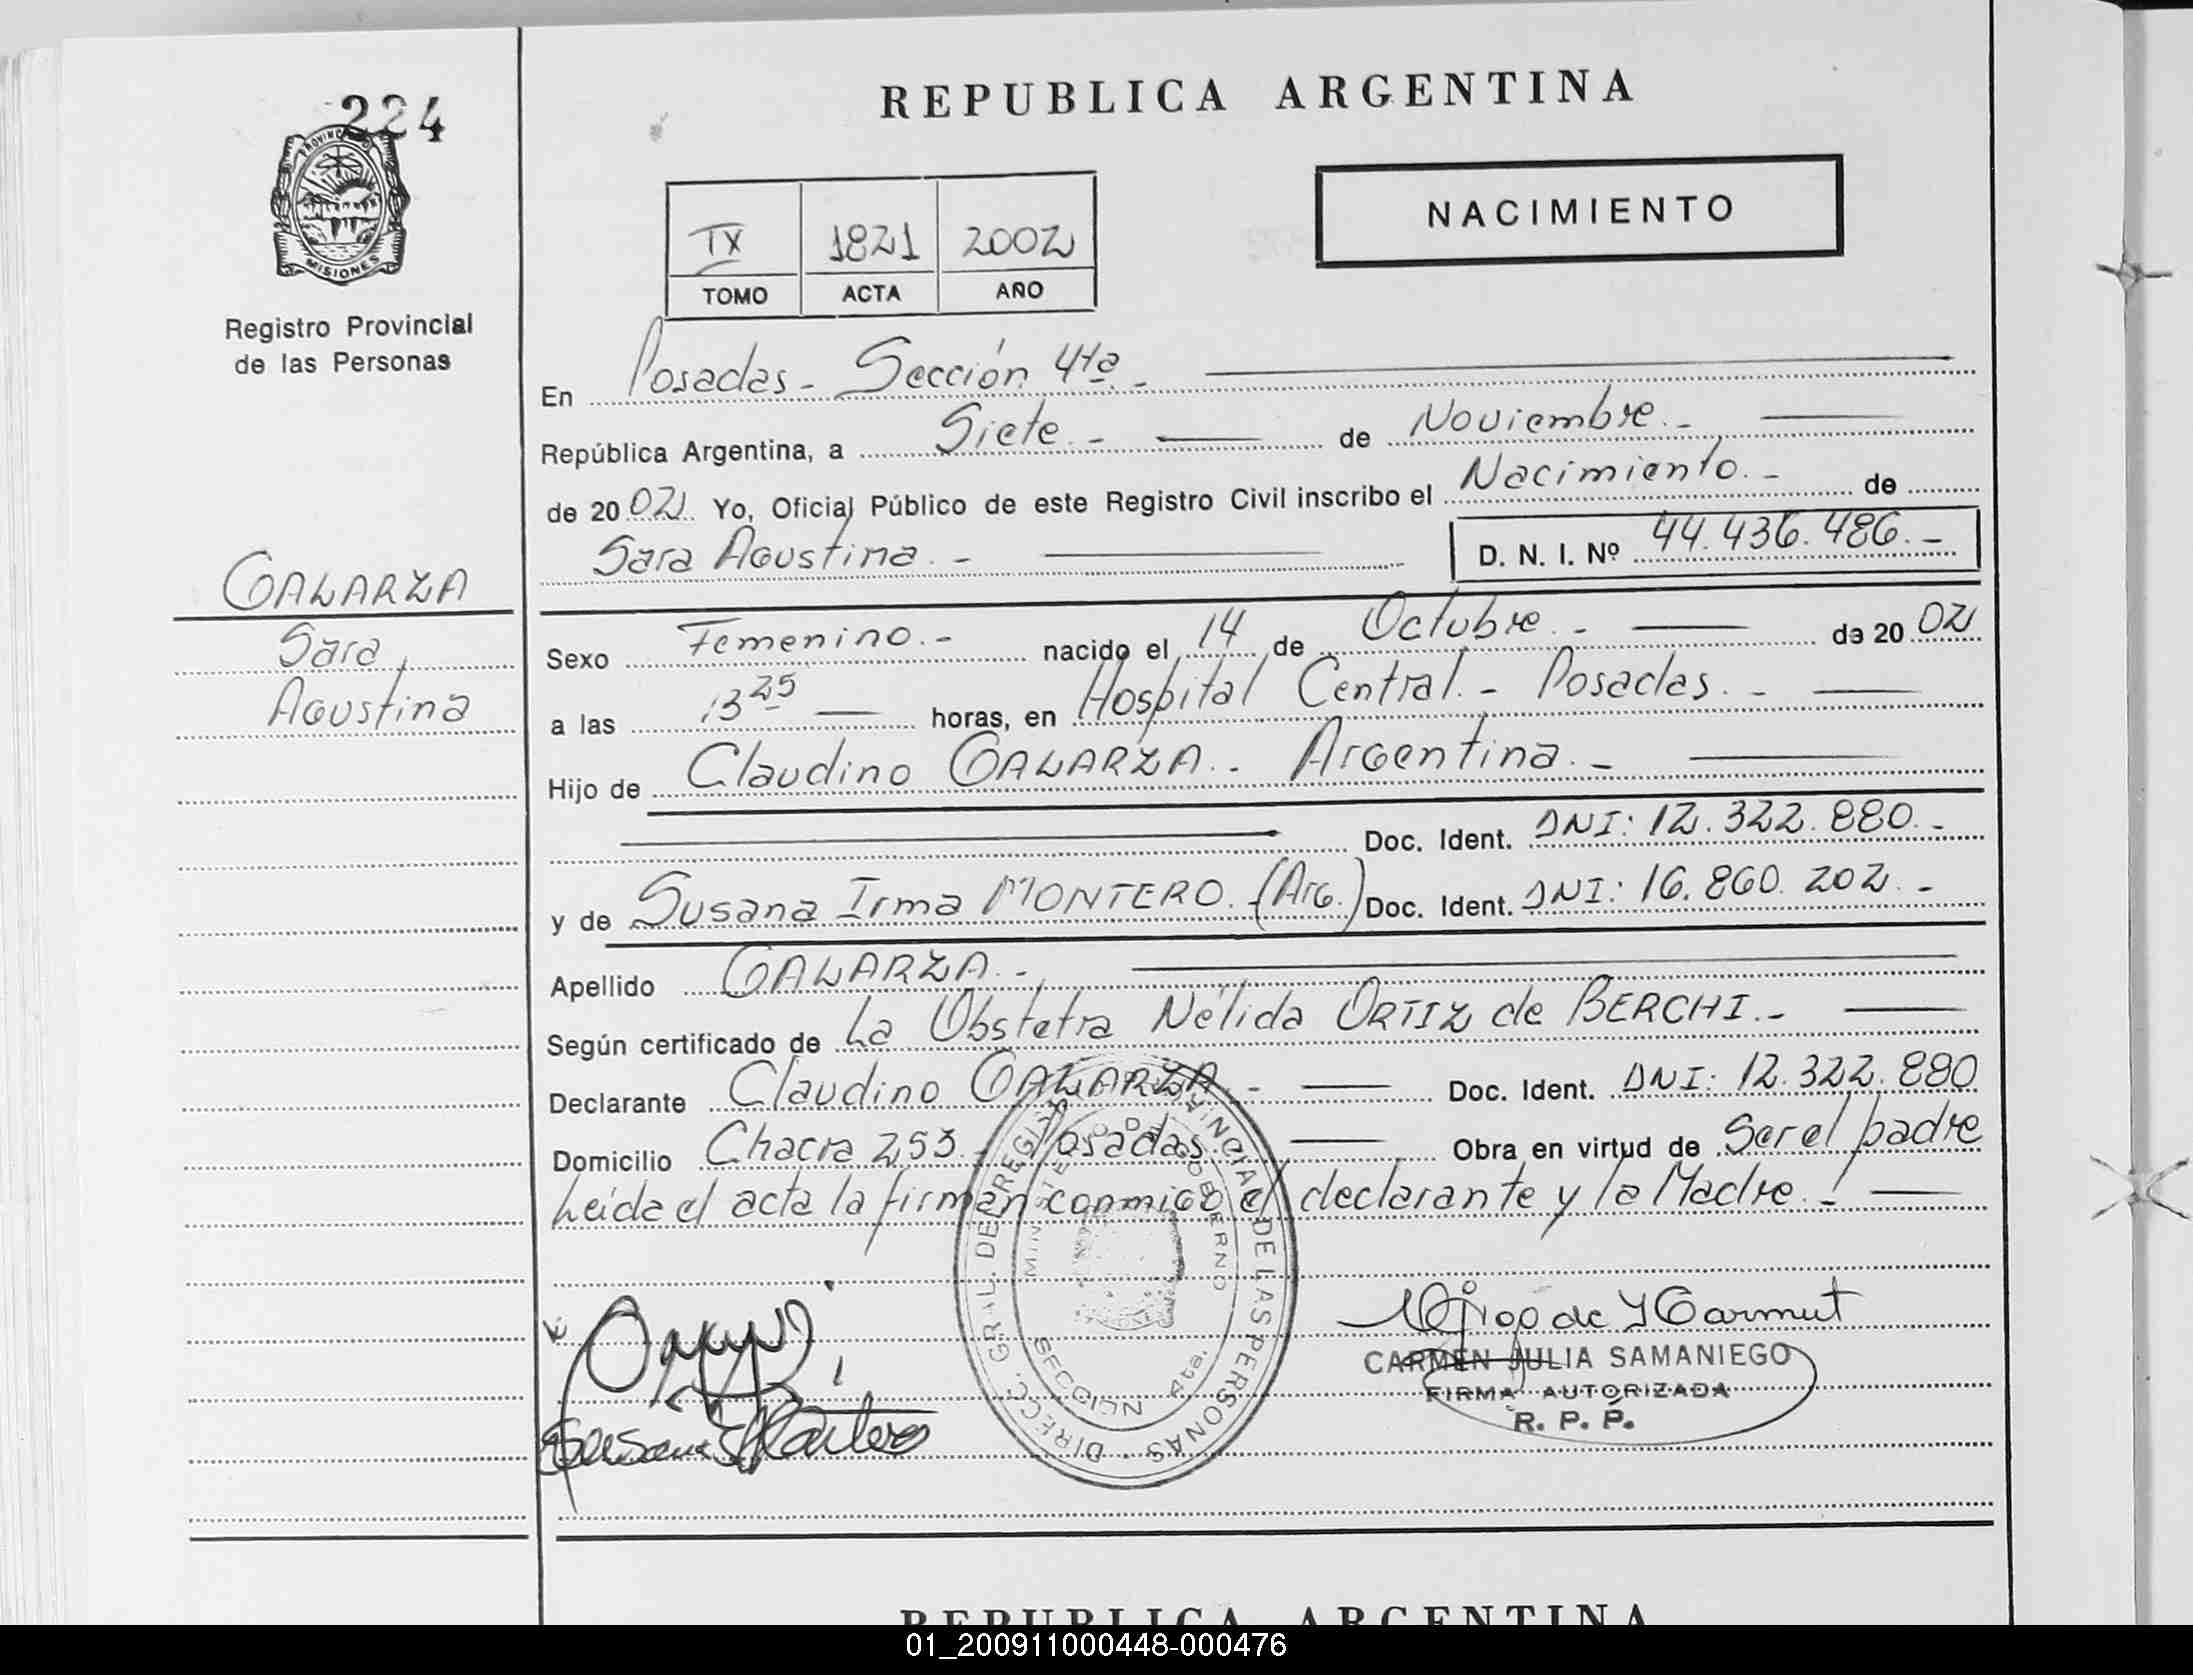 224
REPUBLICA ARGENTINA
PROVINCIA
MISIONES
Registro Provincial
de las Personas
IX 1821 2002
TOMO ACTA AÑO
NACIMIENTO
En Posadas - Sección 4ta. -
República Argentina, a Siete. - de Noviembre. -
de 20 02 Yo, Oficial Público de este Registro Civil inscribo el Nacimiento. - de
Sara Agustina. - D. N. I. Nº 44.436.486. -
GALARZA
Sara
Agustina
Sexo Femenino. - nacido el 14 de Octubre. - de 20 02
a las 13 25 horas, en Hospital Central. - Posadas. -
Hijo de Claudino GALARZA. - Argentina. -
Doc. Ident. DNI: 12.322.880. -
y de Susana Irma MONTERO. (Arg.) Doc. Ident. DNI: 16.860.202. -
Apellido GALARZA. -
Según certificado de La Obstetra Nélida ORTIZ de BERCHI. -
Declarante Claudino GALARZA. - Doc. Ident. DNI: 12.322.880
Domicilio Chacra 253. - Posadas. Obra en virtud de Ser el padre
Leída el acta la firman conmigo el declarante y la Madre. -
DIRECC. GRAL. DE REGISTRO PROVINCIAL DE LAS PERSONAS
MINISTERIO DE GOBIERNO
SECCION 4ta.
CARMEN JULIA SAMANIEGO
FIRMA AUTORIZADA
R. P. P.
REPUBLICA ARGENTINA
01_200911000448-000476